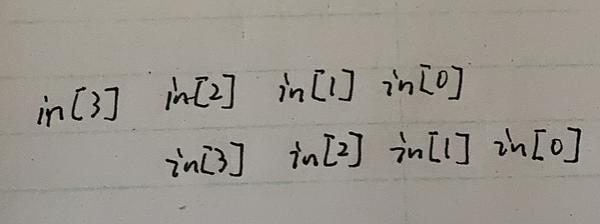 in[3] in[2] in[1] in[0]
in[3] in[2] in[1] in[0]